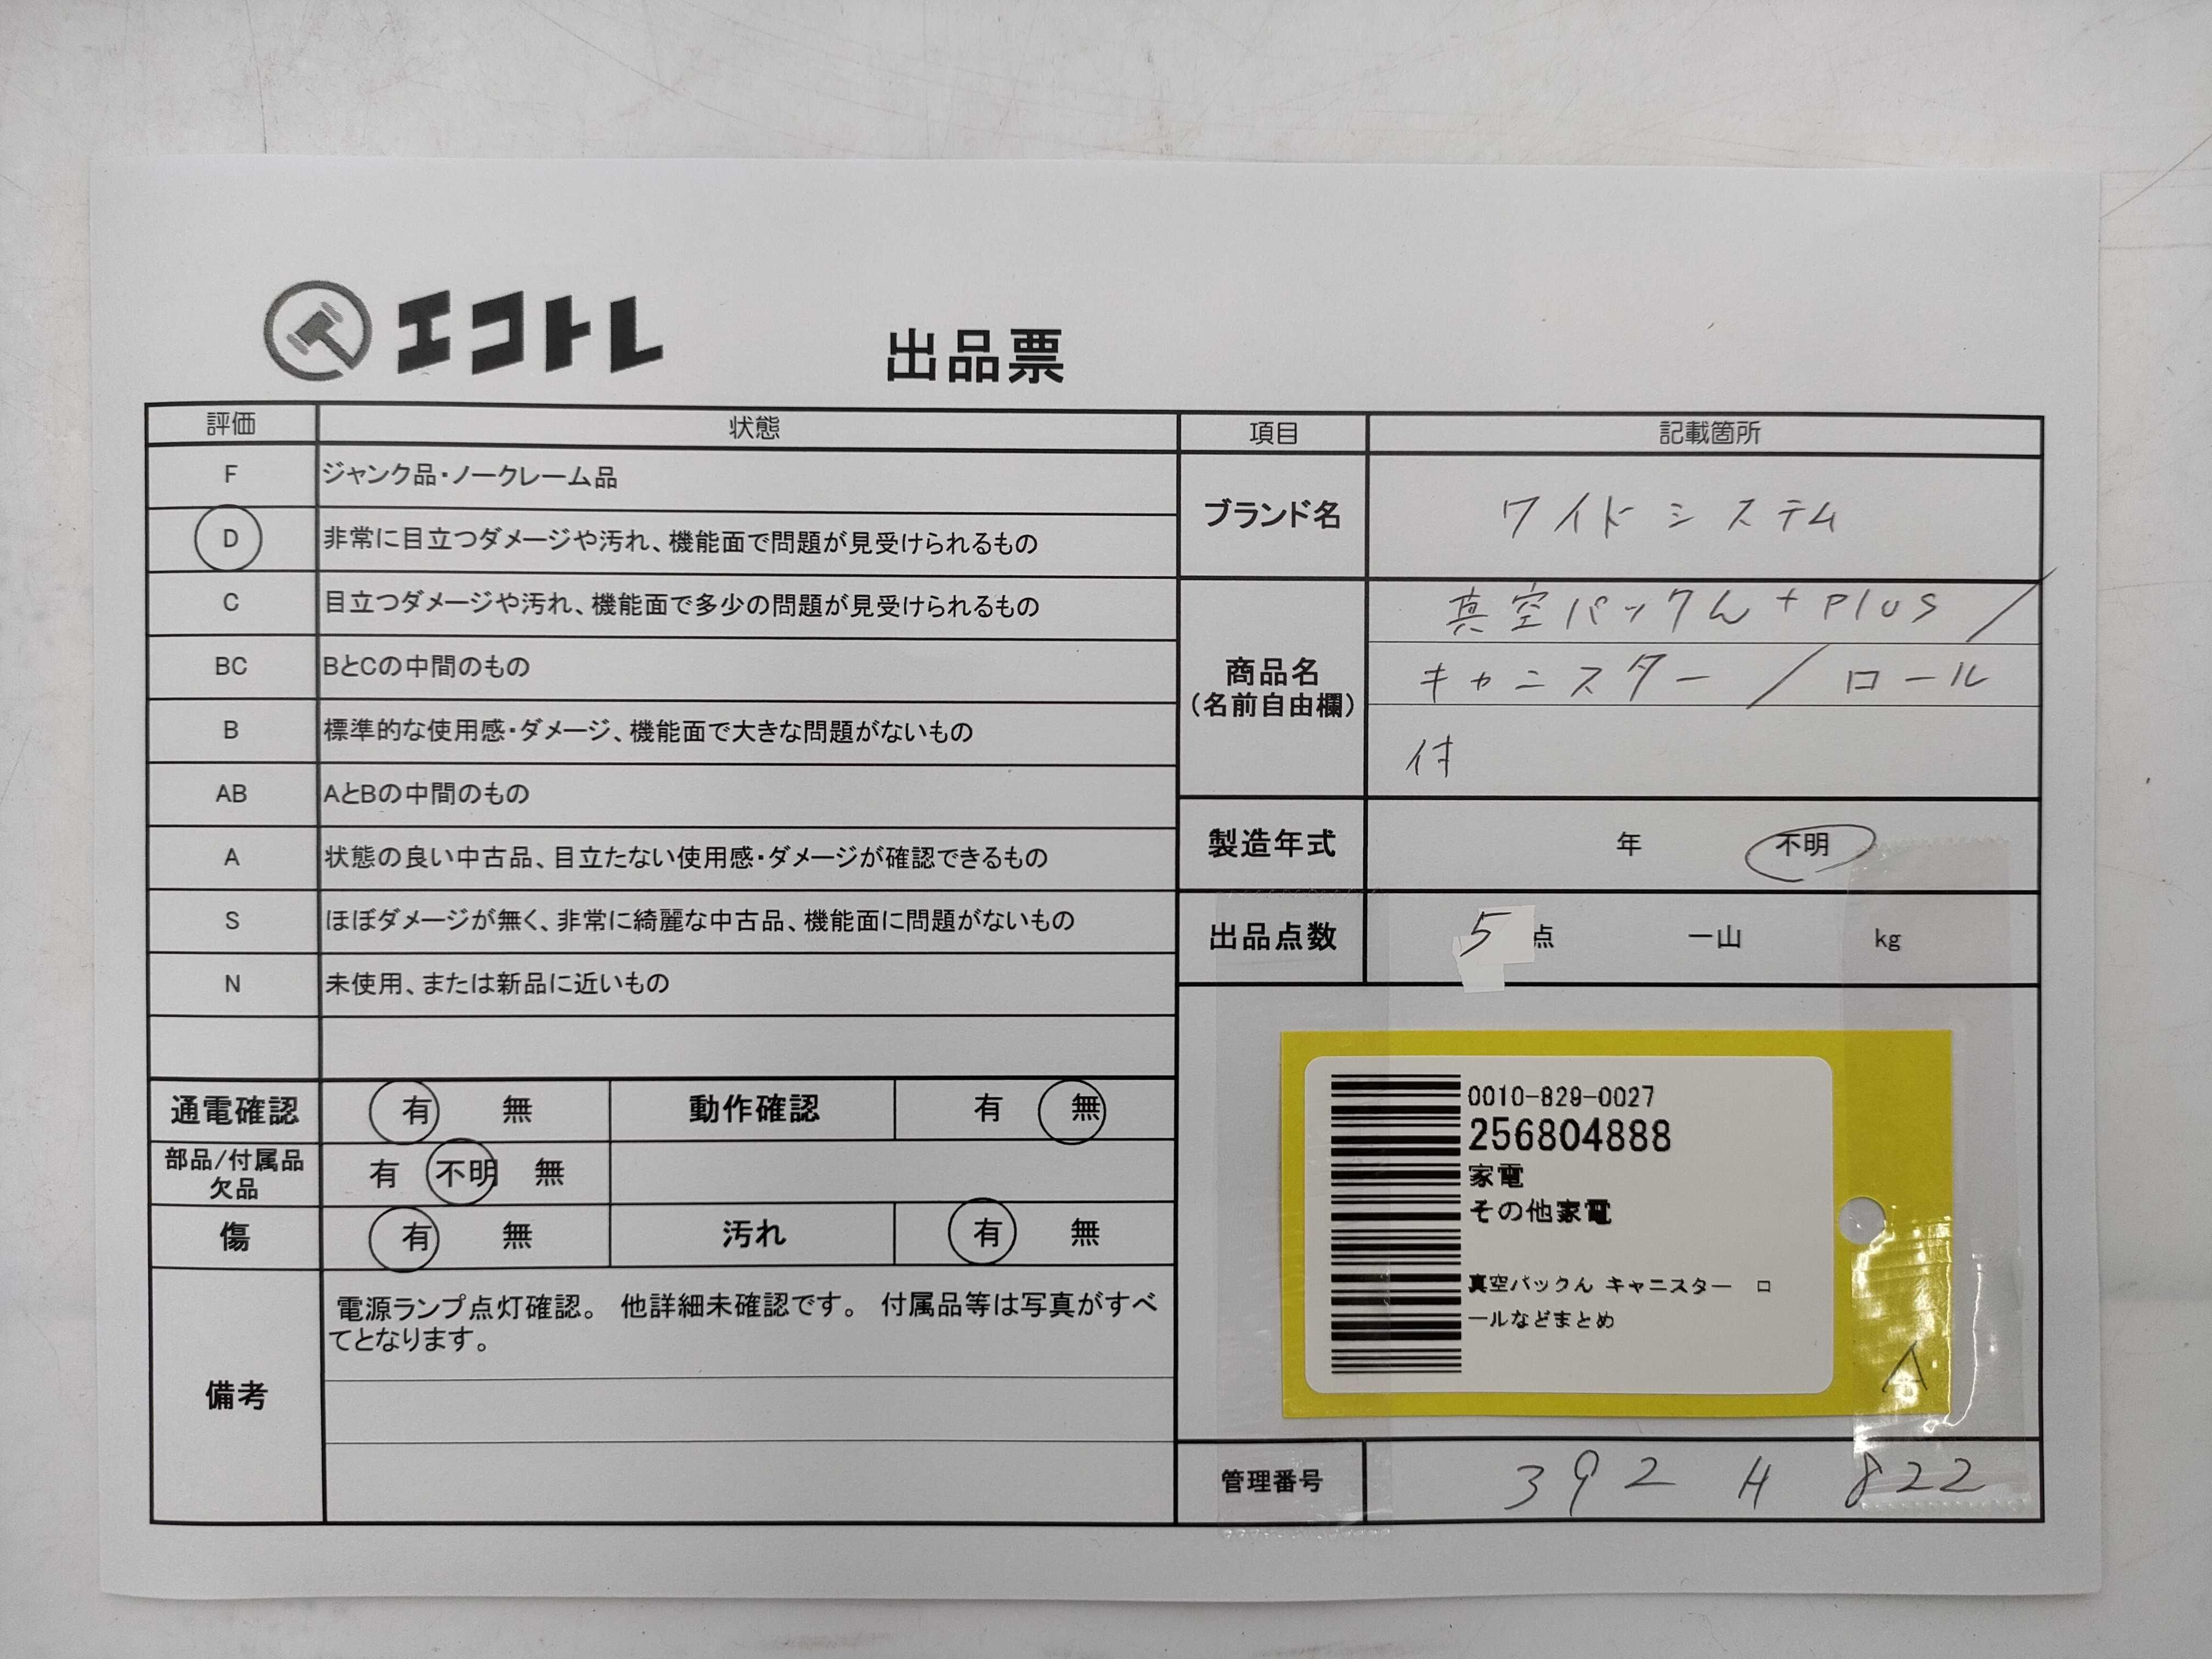 エコトレ
出品票
評価 状態
F ジャンク品・ノークレーム品
D 非常に目立つダメージや汚れ、機能面で問題が見受けられるもの
C 目立つダメージや汚れ、機能面で多少の問題が見受けられるもの
BC BとCの中間のもの
B 標準的な使用感・ダメージ、機能面で大きな問題がないもの
AB AとBの中間のもの
A 状態の良い中古品、目立たない使用感・ダメージが確認できるもの
S ほぼダメージが無く、非常に綺麗な中古品、機能面に問題がないもの
N 未使用、または新品に近いもの
通電確認 有 無 動作確認 有 無
部品/付属品
欠品 有 不明 無
傷 有 無 汚れ 有 無
備考
電源ランプ点灯確認。 他詳細未確認です。 付属品等は写真がすべ
てとなります。
項目 記載箇所
ブランド名 ワイドシステム
商品名
(名前自由欄)
真空パックん+plus/
キャニスター/ロール
付
製造年式 年 不明
出品点数 5点 一山 kg
0010-829-0027
256804888
家電
その他家電
真空パックん キャニスター ロ
ールなどまとめ
A
管理番号 392 H 822